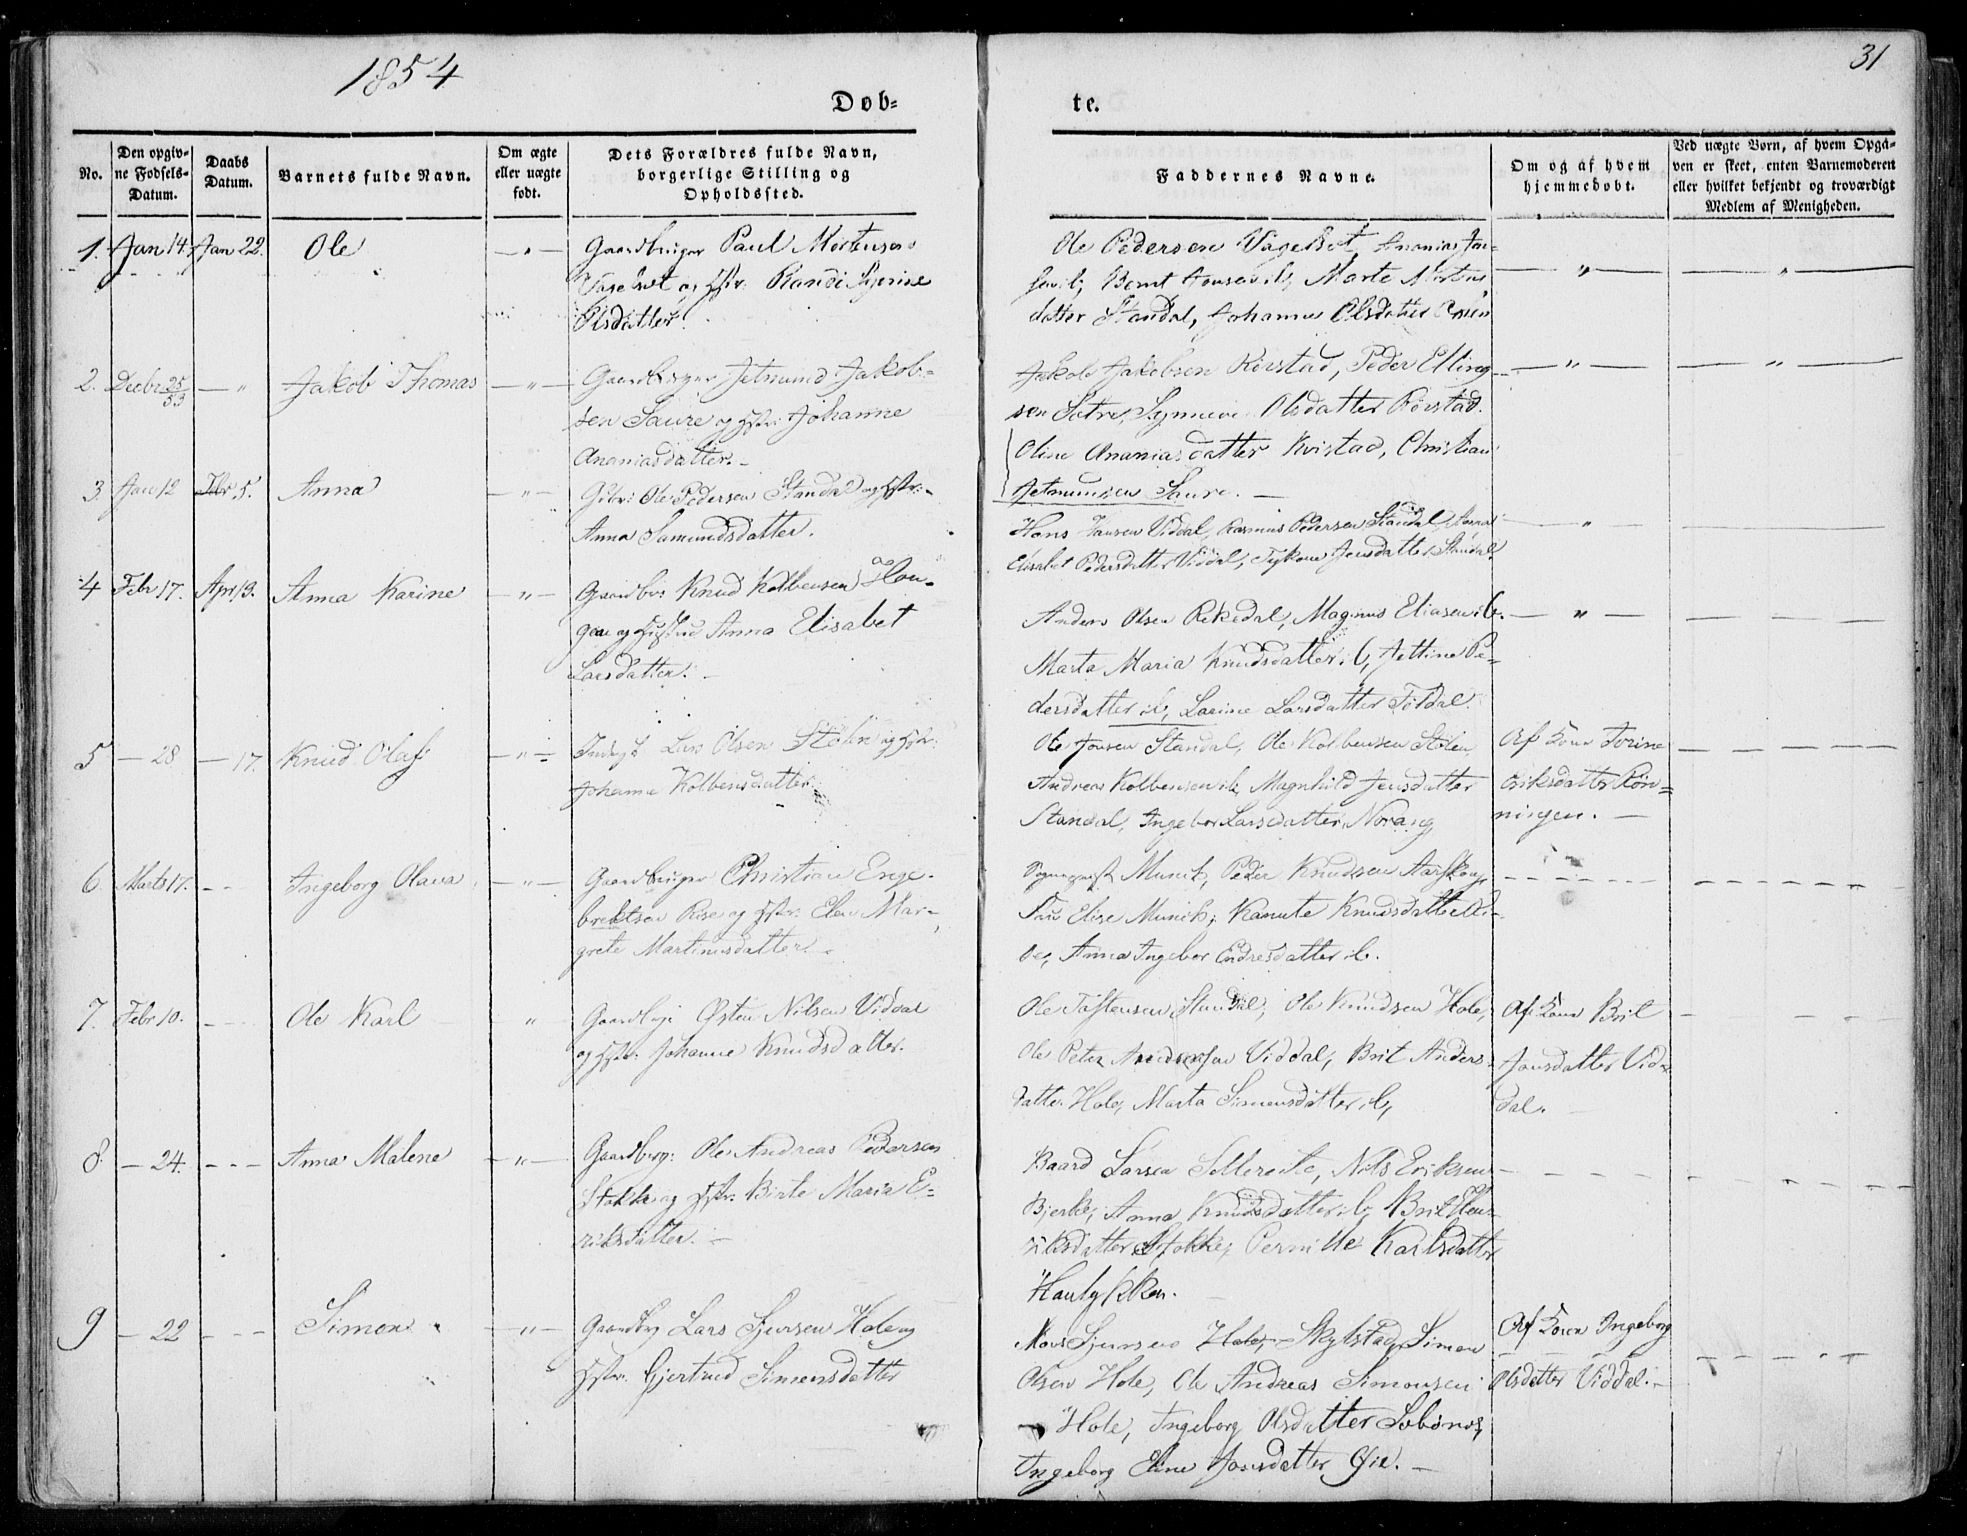 1854
31
Døb-
te.
No.
Den opgiv-
ne Fødsels-
Datum.
Daabs
Datum.
Barnets fulde Navn.
Om ægte
eller uægte
født.
Dets Forældres fulde Navn,
borgerlige Stilling og
Opholdssted.
Faddernes Navne.
Om og af hvem
hjemmedøbt.
Ved uægte Børn, af hvem Opga-
ven er skeet, enten Barnemoderen
eller hvilket bekjendt og troværdigt
Medlem af Menigheden.
1. Jan 14. Jan 22. Ole — " — Gaardbruger Paul Mortensen
og Hstr: Randi
Olsdatter.
Ole Pedersen Ananias Jen-
sen ib, Bernt Jensen ib, Marte Mortens
datter Standal, Johanne Olsdatter
2. Decbr 25/53 — " Jakob Thomas — " — Gaardbruger Jetmund Jakob-
sen Saure og Hstr: Johanne
Ananiasdatter. -
Jakob Jakobsen Rørstad, Peder Elling-
sen Sætre, Synneve Olsdatter Rørstad.
Oline Ananiasdatter Kvistad, Christian
Jetmundsen Saure. —
3. Jan 12 Febr 5. Anna — " — Gdbr: Ole Pedersen Standal og Hstr:
Anna Samundsdatter.
Hans Hansen Viddal, Rasmus Pedersen Standal, Anna
Elisabet Pedersdatter Viddal, Jensdatter Standal
4 Febr 17. Apr 13. Anna Karine — " — Gaardbr: Knud Kolbensen Hou-
gen og Hustru Anna Elisabet
Larsdatter. -
Anders Olsen Rekkedal, Magnus Eliasen ib. — " —
Marta Maria Knudsdatter ib, Jettine Pe-
dersdatter ib, Larine Larsdatter
5 — 28 — 17. Knud Olaf — " — Inderst Lars Olsen Stølen og Hstr:
Johanne Kolbensdatter.
Ole Jonsen Standal, Ole Kolbensen Stølen
Andreas Kolbensen ib, Magnhild Jensdatter
Standal, Ingebor Larsdatter Norang
Af Kone Torine
Eriksdatter Røn-
ningen. —
6. Marts 17. - - Ingeborg Olava — " — Gaardbruger Christian Enge-
brektsen Rise og Hstr: Elen Mar-
grete Martinusdatter. -
Sogneprest Munch, Peder Knudsen Aarskog,
Fru Elise Munch, Kanute Knudsdatter
Anna Ingebor Endresdatter ib.
7. Febr 10. - - Ole Karl " Gaardbrgr Østen Nilsen Viddal
og Hstr: Johanne Knudsdatter.
Ole Tostensen Standal, Ole Knudsen Hole,
Ole Peter Andersen Viddal, Brit Anders-
datter Hole, Marta Simensdatter ib,
Af Kone Brit
Jonsdatter Vid-
dal.
8. — 24. - - - Anna Malene — " — Gaardbrgr: Ole Andreas Pedersen
Stokke og Hstr: Birte Maria E-
riksdatter. —
Baard Larsen Sellereite, Nils Eriksen
Bjerke, Anna Knudsdatter ib, Brit Elen
Riksdatter Stokke, Pernille Karlsdatter
Haulykken.
9 — 22 - - - Simon — " — Gaardbrg Lars Sjursen Hole og
Hstr: Gjertrud Simensdatter
Sjursen Hole, Skylstad, Simen
Olsen Hole, Ole Andreas Simonsen
Hole, Ingeborg Olsdatter
Ingeborg Eline Jonsdatter Øie. —
Af Konen Ingeborg
Olsdatter Viddal. —